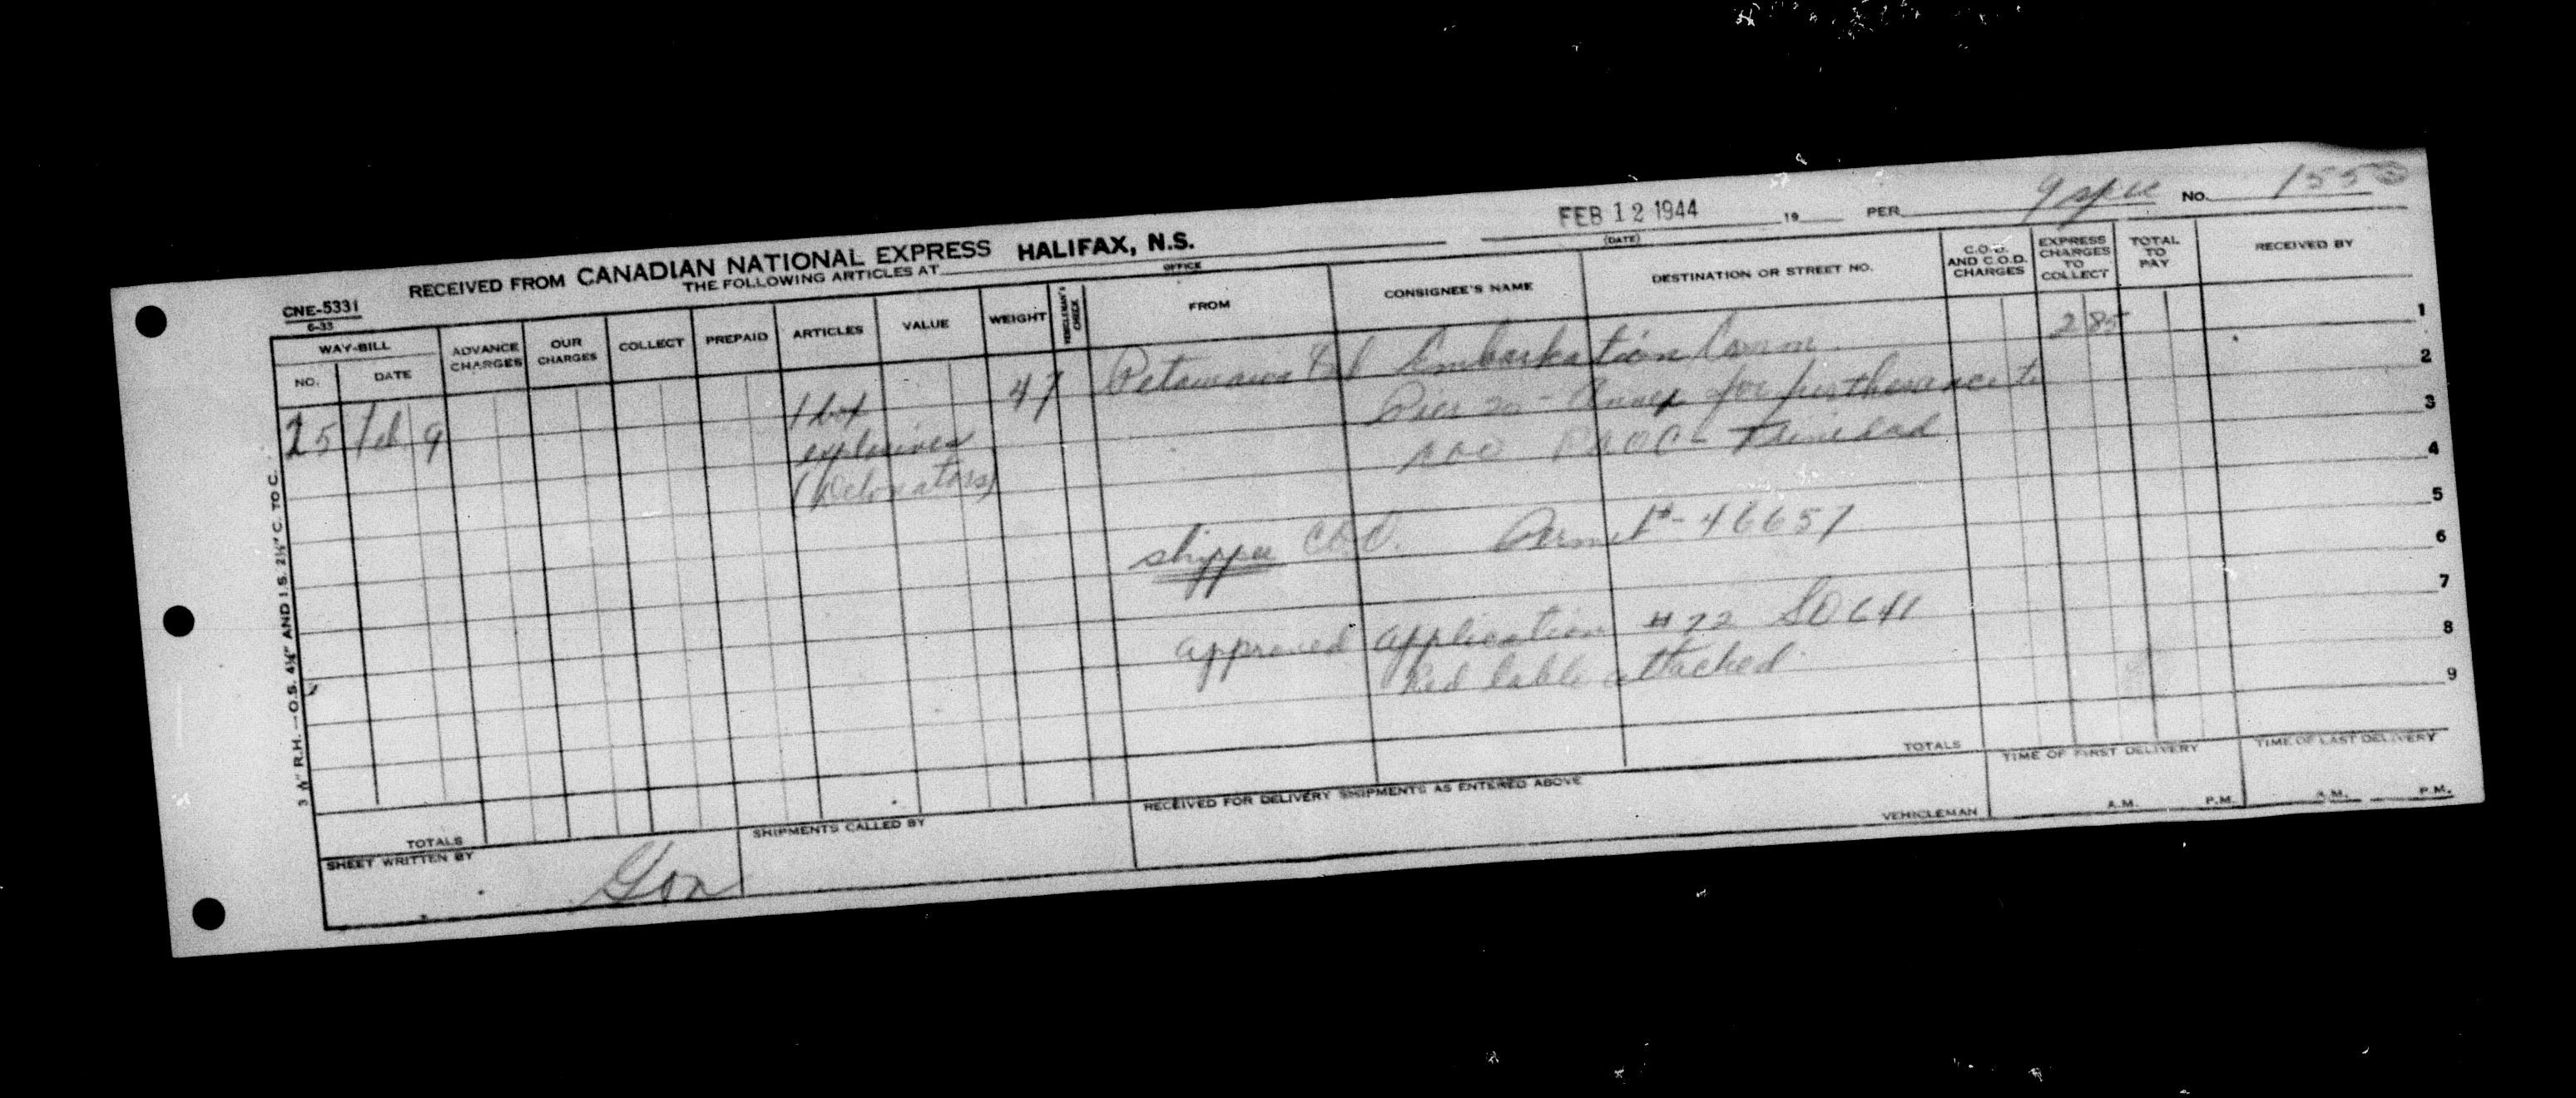 FEB 12 1944 19 PER NO. 155
(DATE)
RECEIVED FROM CANADIAN NATIONAL EXPRESS HALIFAX, N.S.
THE FOLLOWING ARTICLES AT
OFFICE
CNE-5331
6-33
WAY-BILL
NO. DATE ADVANCE CHARGES OUR CHARGES COLLECT PREPAID ARTICLES VALUE WEIGHT VEHICLEMAN'S CHECK FROM CONSIGNEE'S NAME DESTINATION OR STREET NO. C.O.D. AND C.O.D. CHARGES EXPRESS CHARGES TO COLLECT TOTAL TO PAY RECEIVED BY
25 Feb 9 1 box 47 Petawawa Embarkation Comm. 2 85 1
explosives Pier 20 - Annex for furtherance to 2
(Detonators) Trinidad 3
4
shipper Permit - 46651 5
6
approved application # 72 SO641 7
Red lable attached 8
9
TOTALS
TIME OF FIRST DELIVERY TIME OF LAST DELIVERY
RECEIVED FOR DELIVERY SHIPMENTS AS ENTERED ABOVE
VEHICLEMAN
A.M. P.M. A.M. P.M.
TOTALS
SHIPMENTS CALLED BY
SHEET WRITTEN BY
3 ⅛" R.H.—O.S. 4¼" AND I.S. 2¾" C. TO C.